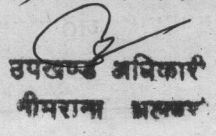 उपखण्ड अधिकारी
नीमराना अलवर